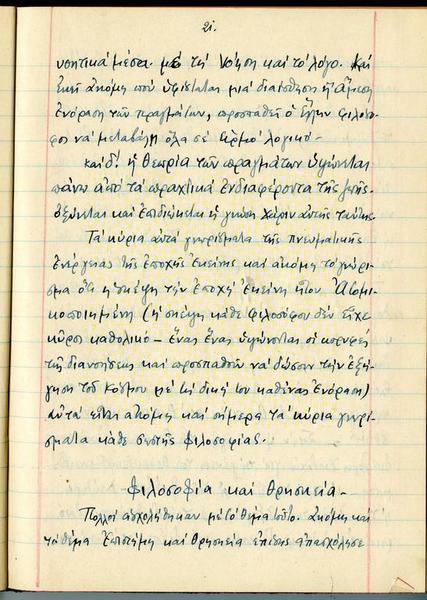 21.
νοητικά μέσα. μὲ τὴ νόηση καὶ τὸ λόγο. Καὶ
ἐκεῖ ἀκόμη ποὺ ὑφίσταται μιὰ διαίσθηση ἢ ἄμεση
ἐνόραση τῶν πραγμάτων, προσπαθεῖ ὁ ἕλλην φιλόσο-
φος νὰ μεταβάλῃ ὅλα σὲ εἱρμὸ λογικό.
καὶ δ! ἡ θεωρία τῶν πραγμάτων ὑψώνεται
πάνω ἀπὸ τὰ πρακτικὰ ἐνδιαφέροντα τῆς ζωῆς.
ὑψώνεται καὶ ἐπιδιώκεται ἡ γνώση χάριν αὐτῆς ταύτης.
Τὰ κύρια αὐτὰ γνωρίσματα τῆς πνευματικῆς
ἐνέργειας τῆς ἐποχῆς ἐκείνης καὶ ἀκόμη τὸ γνώρι-
σμα ὅτι ἡ σκέψη τὴν ἐποχὴ ἐκείνη ἦτον Ἀτομι-
κοποιημένη (ἡ σκέψη κάθε φιλοσόφου δὲν εἶχε
κῦρος καθολικὸ – ἕνας ἕνας ὑψώνονται οἱ κορυφές
τῆς διανοήσεως καὶ προσπαθοῦν νὰ δώσουν τὴν ἐξή-
γηση τοῦ κόσμου μὲ τὴ δική του καθένας ἐνόραση)
αὐτὰ εἶναι ἀκόμη καὶ σήμερα τὰ κύρια γνωρί-
σματα κάθε σωστῆς φιλοσοφίας.
– Φιλοσοφία καὶ θρησκεία –
Πολλοὶ ἀσχολήθηκαν μὲ τὸ θέμα τοῦτο. Ἀκόμη καὶ
τὸ θέμα Ἐπιστήμη καὶ θρησκεία ἐπίσης ἀπασχόλησε